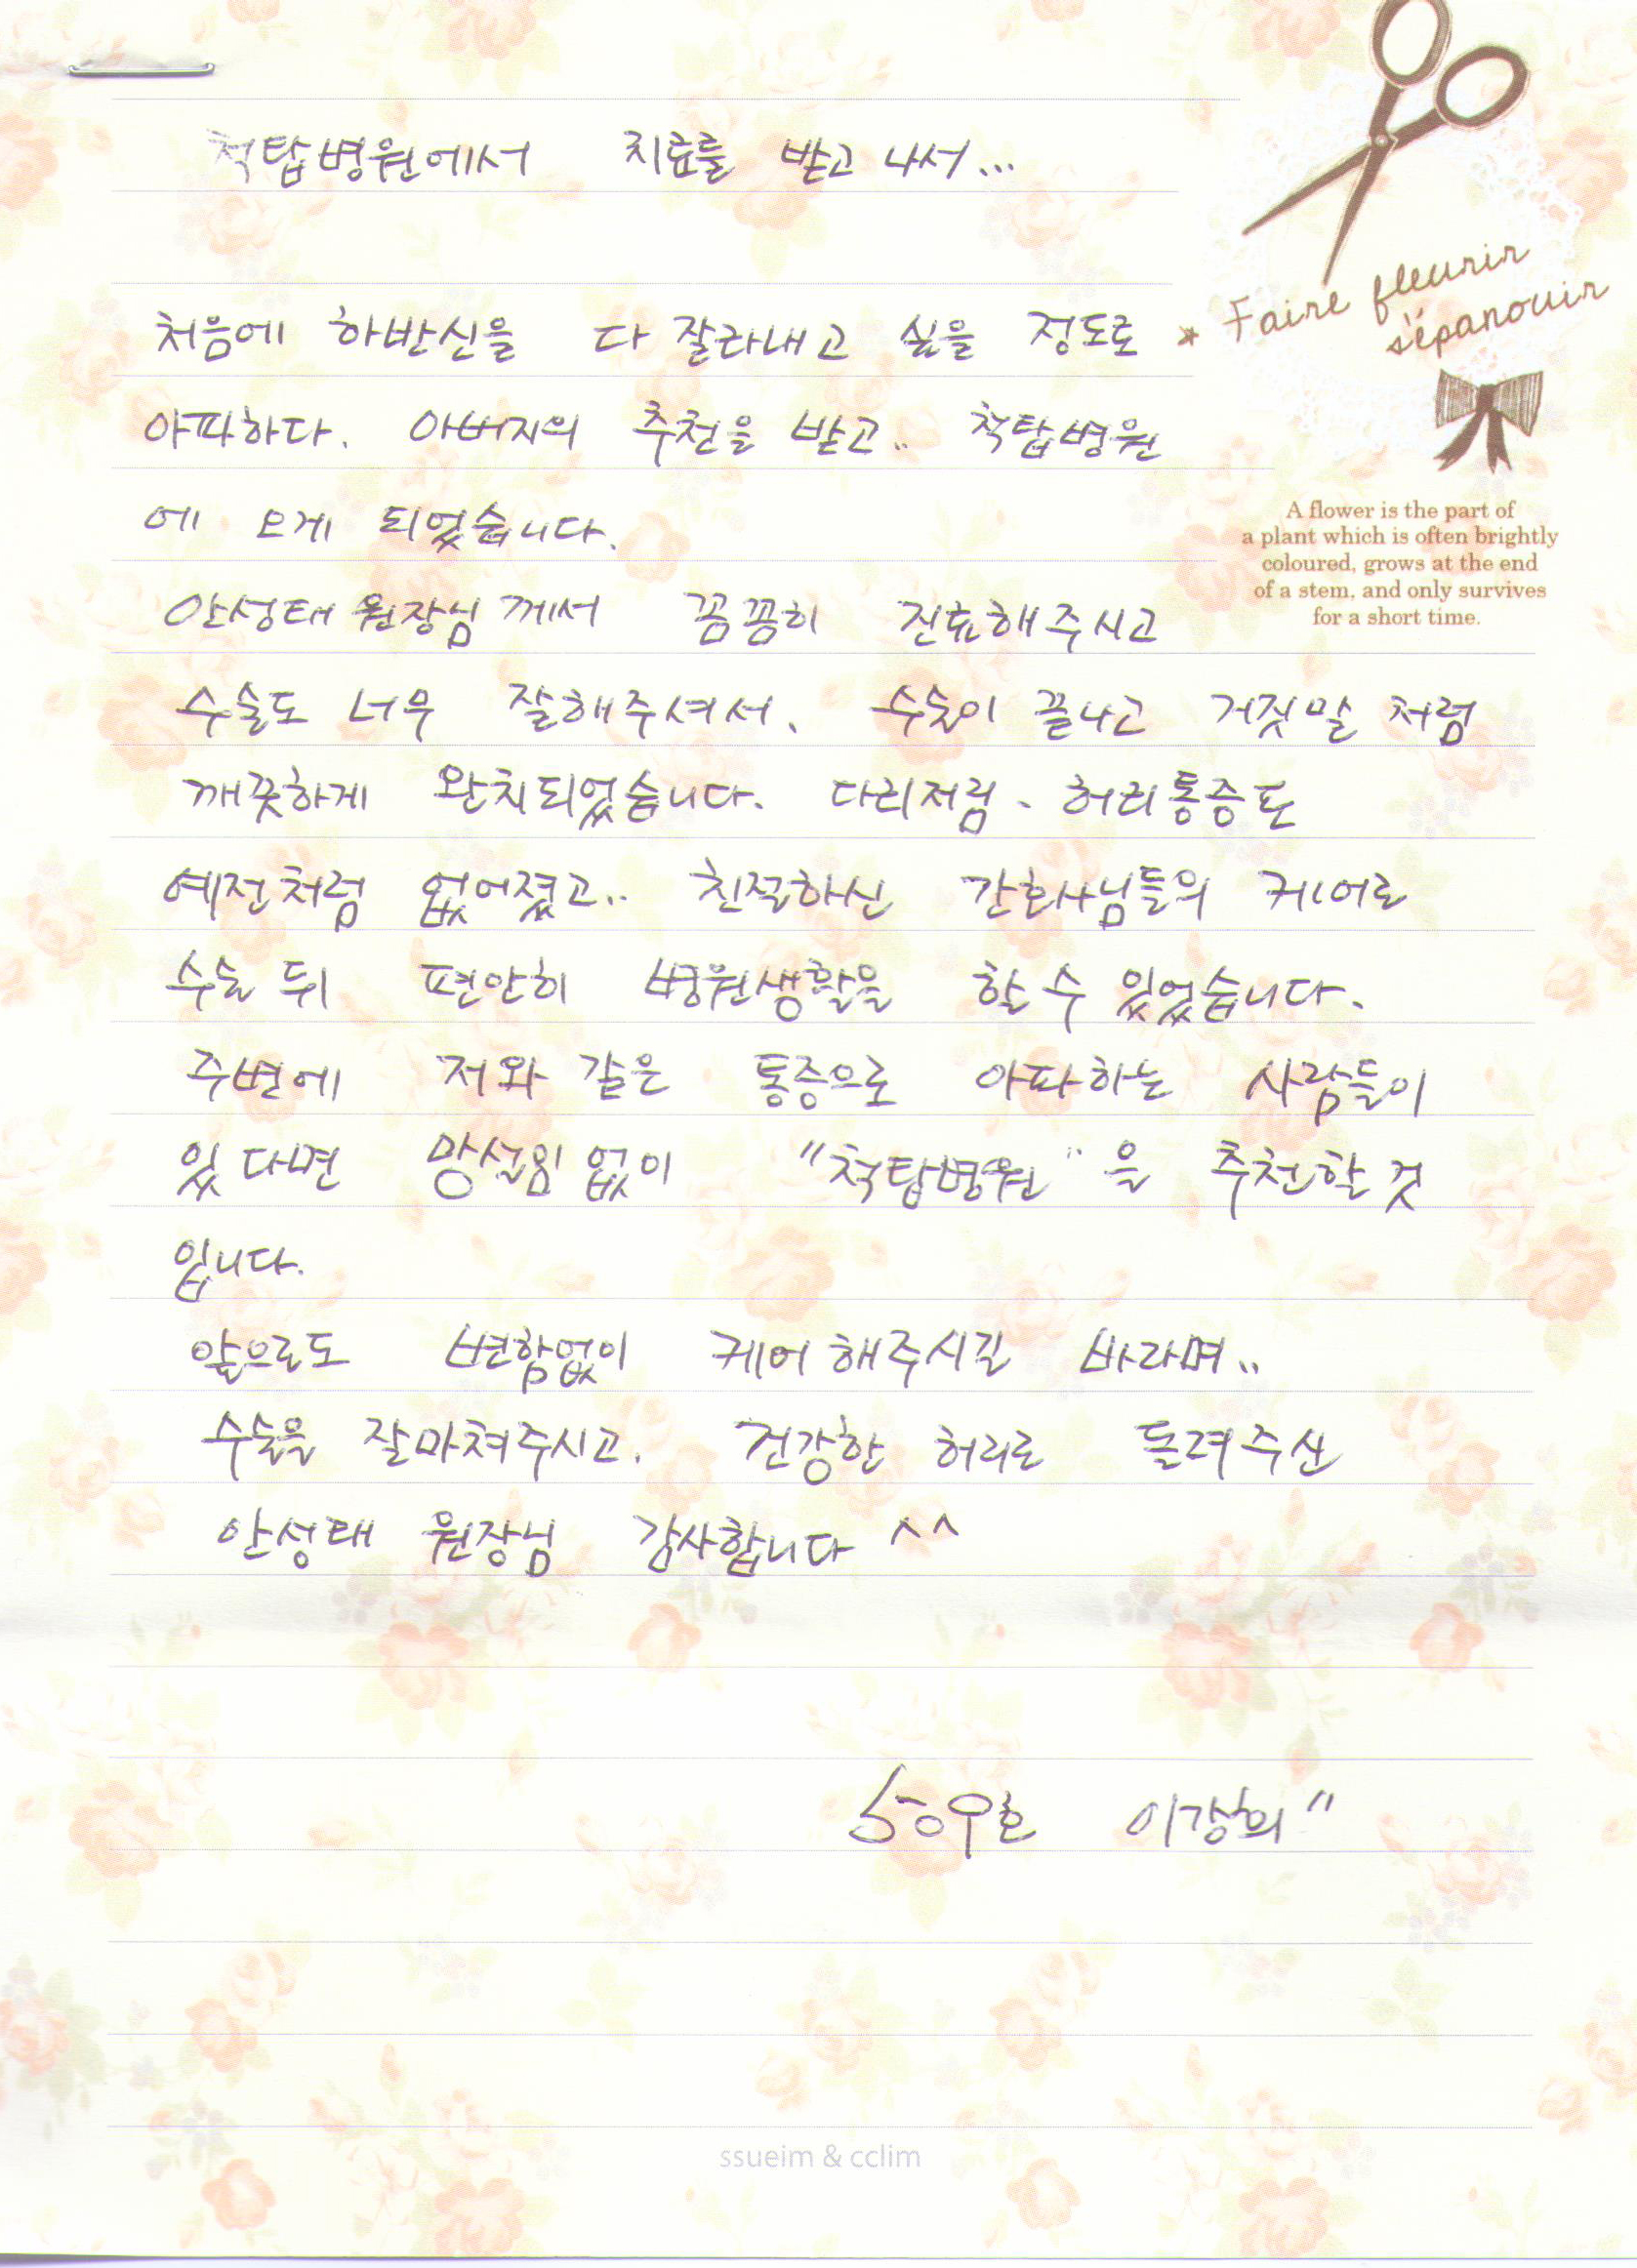 척탑병원에서 치료를 받고 나서...
처음에 하반신을 다 잘라내고 싶을 정도로
아파하다. 아버지의 추천을 받고.. 척탑병원
에 오게 되었습니다.
안성태 원장님께서 꼼꼼히 진료해주시고
수술도 너무 잘해주셔서, 수술이 끝나고 거짓말 처럼
깨끗하게 완치되었습니다. 다리저림, 허리통증도
예전처럼 없어졌고.. 친절하신 간호사님들의 케어로
수술 뒤 편안히 병원생활을 할 수 있었습니다.
주변에 저와 같은 통증으로 아파하는 사람들이
있다면 망설임 없이 "척탑병원"을 추천할 것
입니다.
앞으로도 변함없이 케어해주시길 바라며..
수술을 잘마쳐주시고. 건강한 허리로 돌려주신
안성태 원장님 감사합니다 ^^
502호 이강희"
Faire fleurir
s'épanouir
A flower is the part of
a plant which is often brightly
coloured, grows at the end
of a stem, and only survives
for a short time.
ssueim & cclim